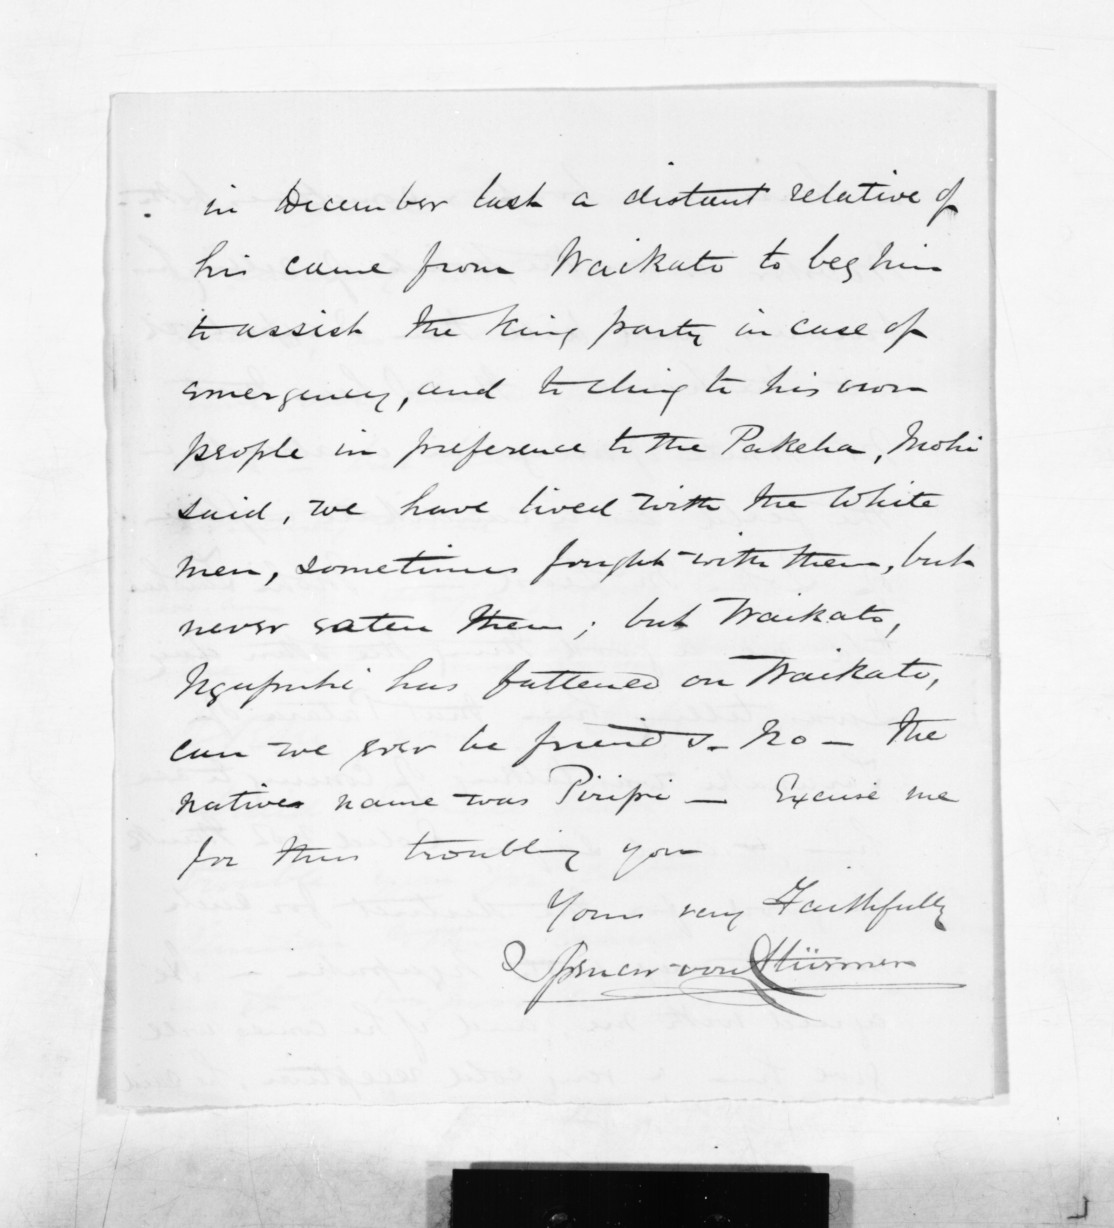 in December last a distant relative of
his came from Waikato to beg him
to assist the King party in case of
emergency, and to cling to his own
people in preference to the Pakeha, Mohi
said, we have lived with the White
men, sometimes fought with them, but
never eaten them; but Waikato,
Ngapuhi has fattened on Waikato,
can we ever be friends - No - The
natives name was Piripi - Excuse me
for thus troubling you
Yours very Faithfully
Spencer von Stürmer